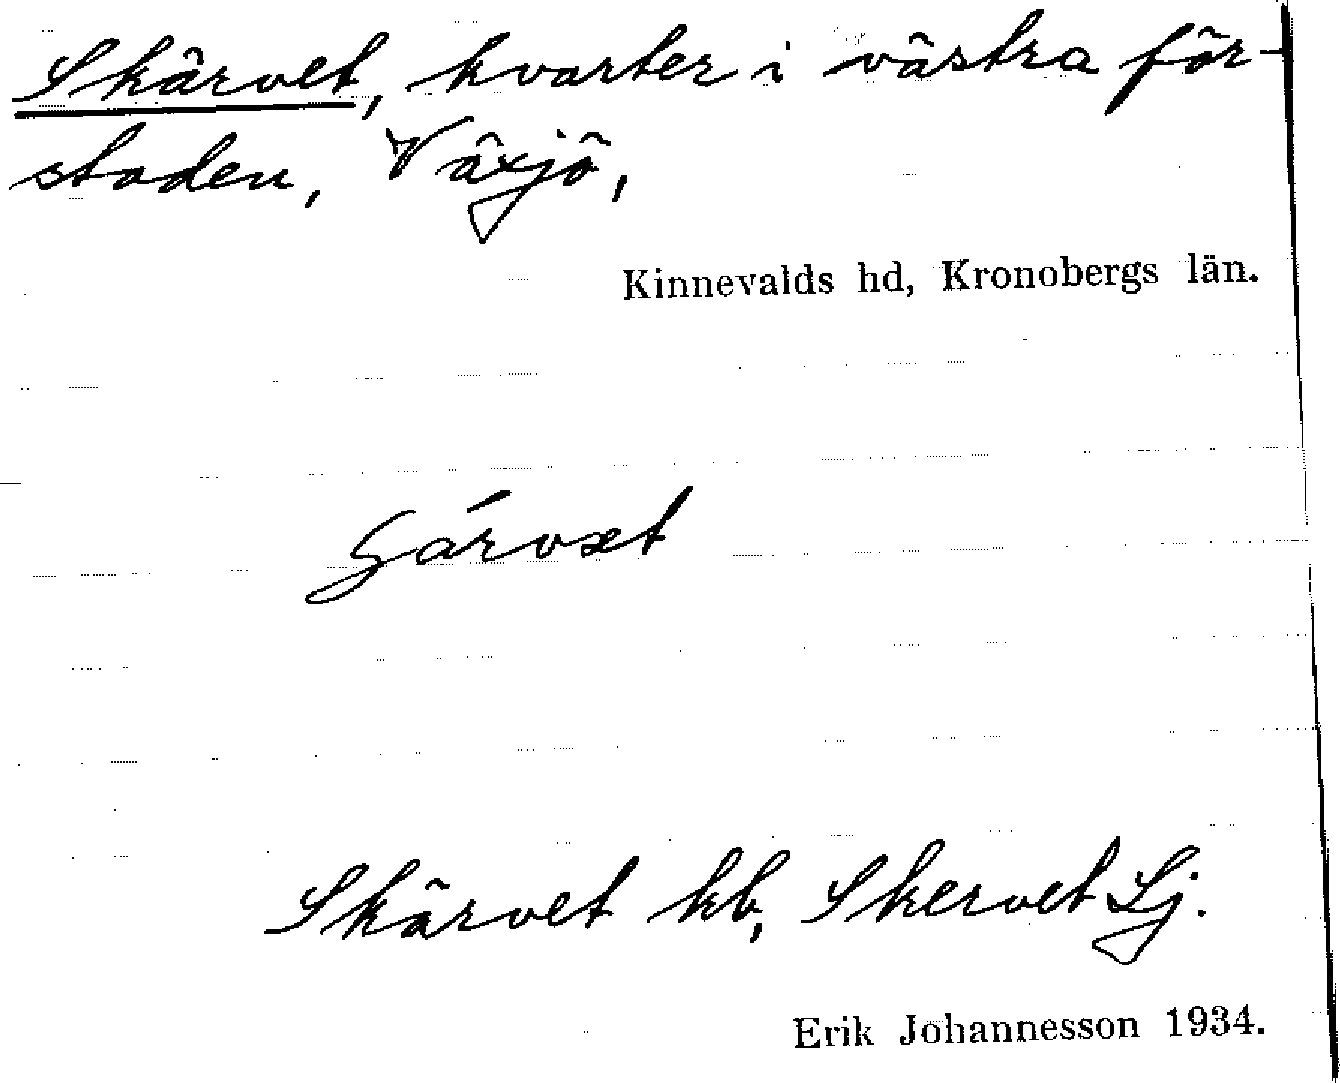 Skärvet, kvarter i västra för-
staden, Växjö,
Kinnevalds hd, Kronobergs län.
Skärvet kb, Skervet Lj.
Erik Johannesson 1934.